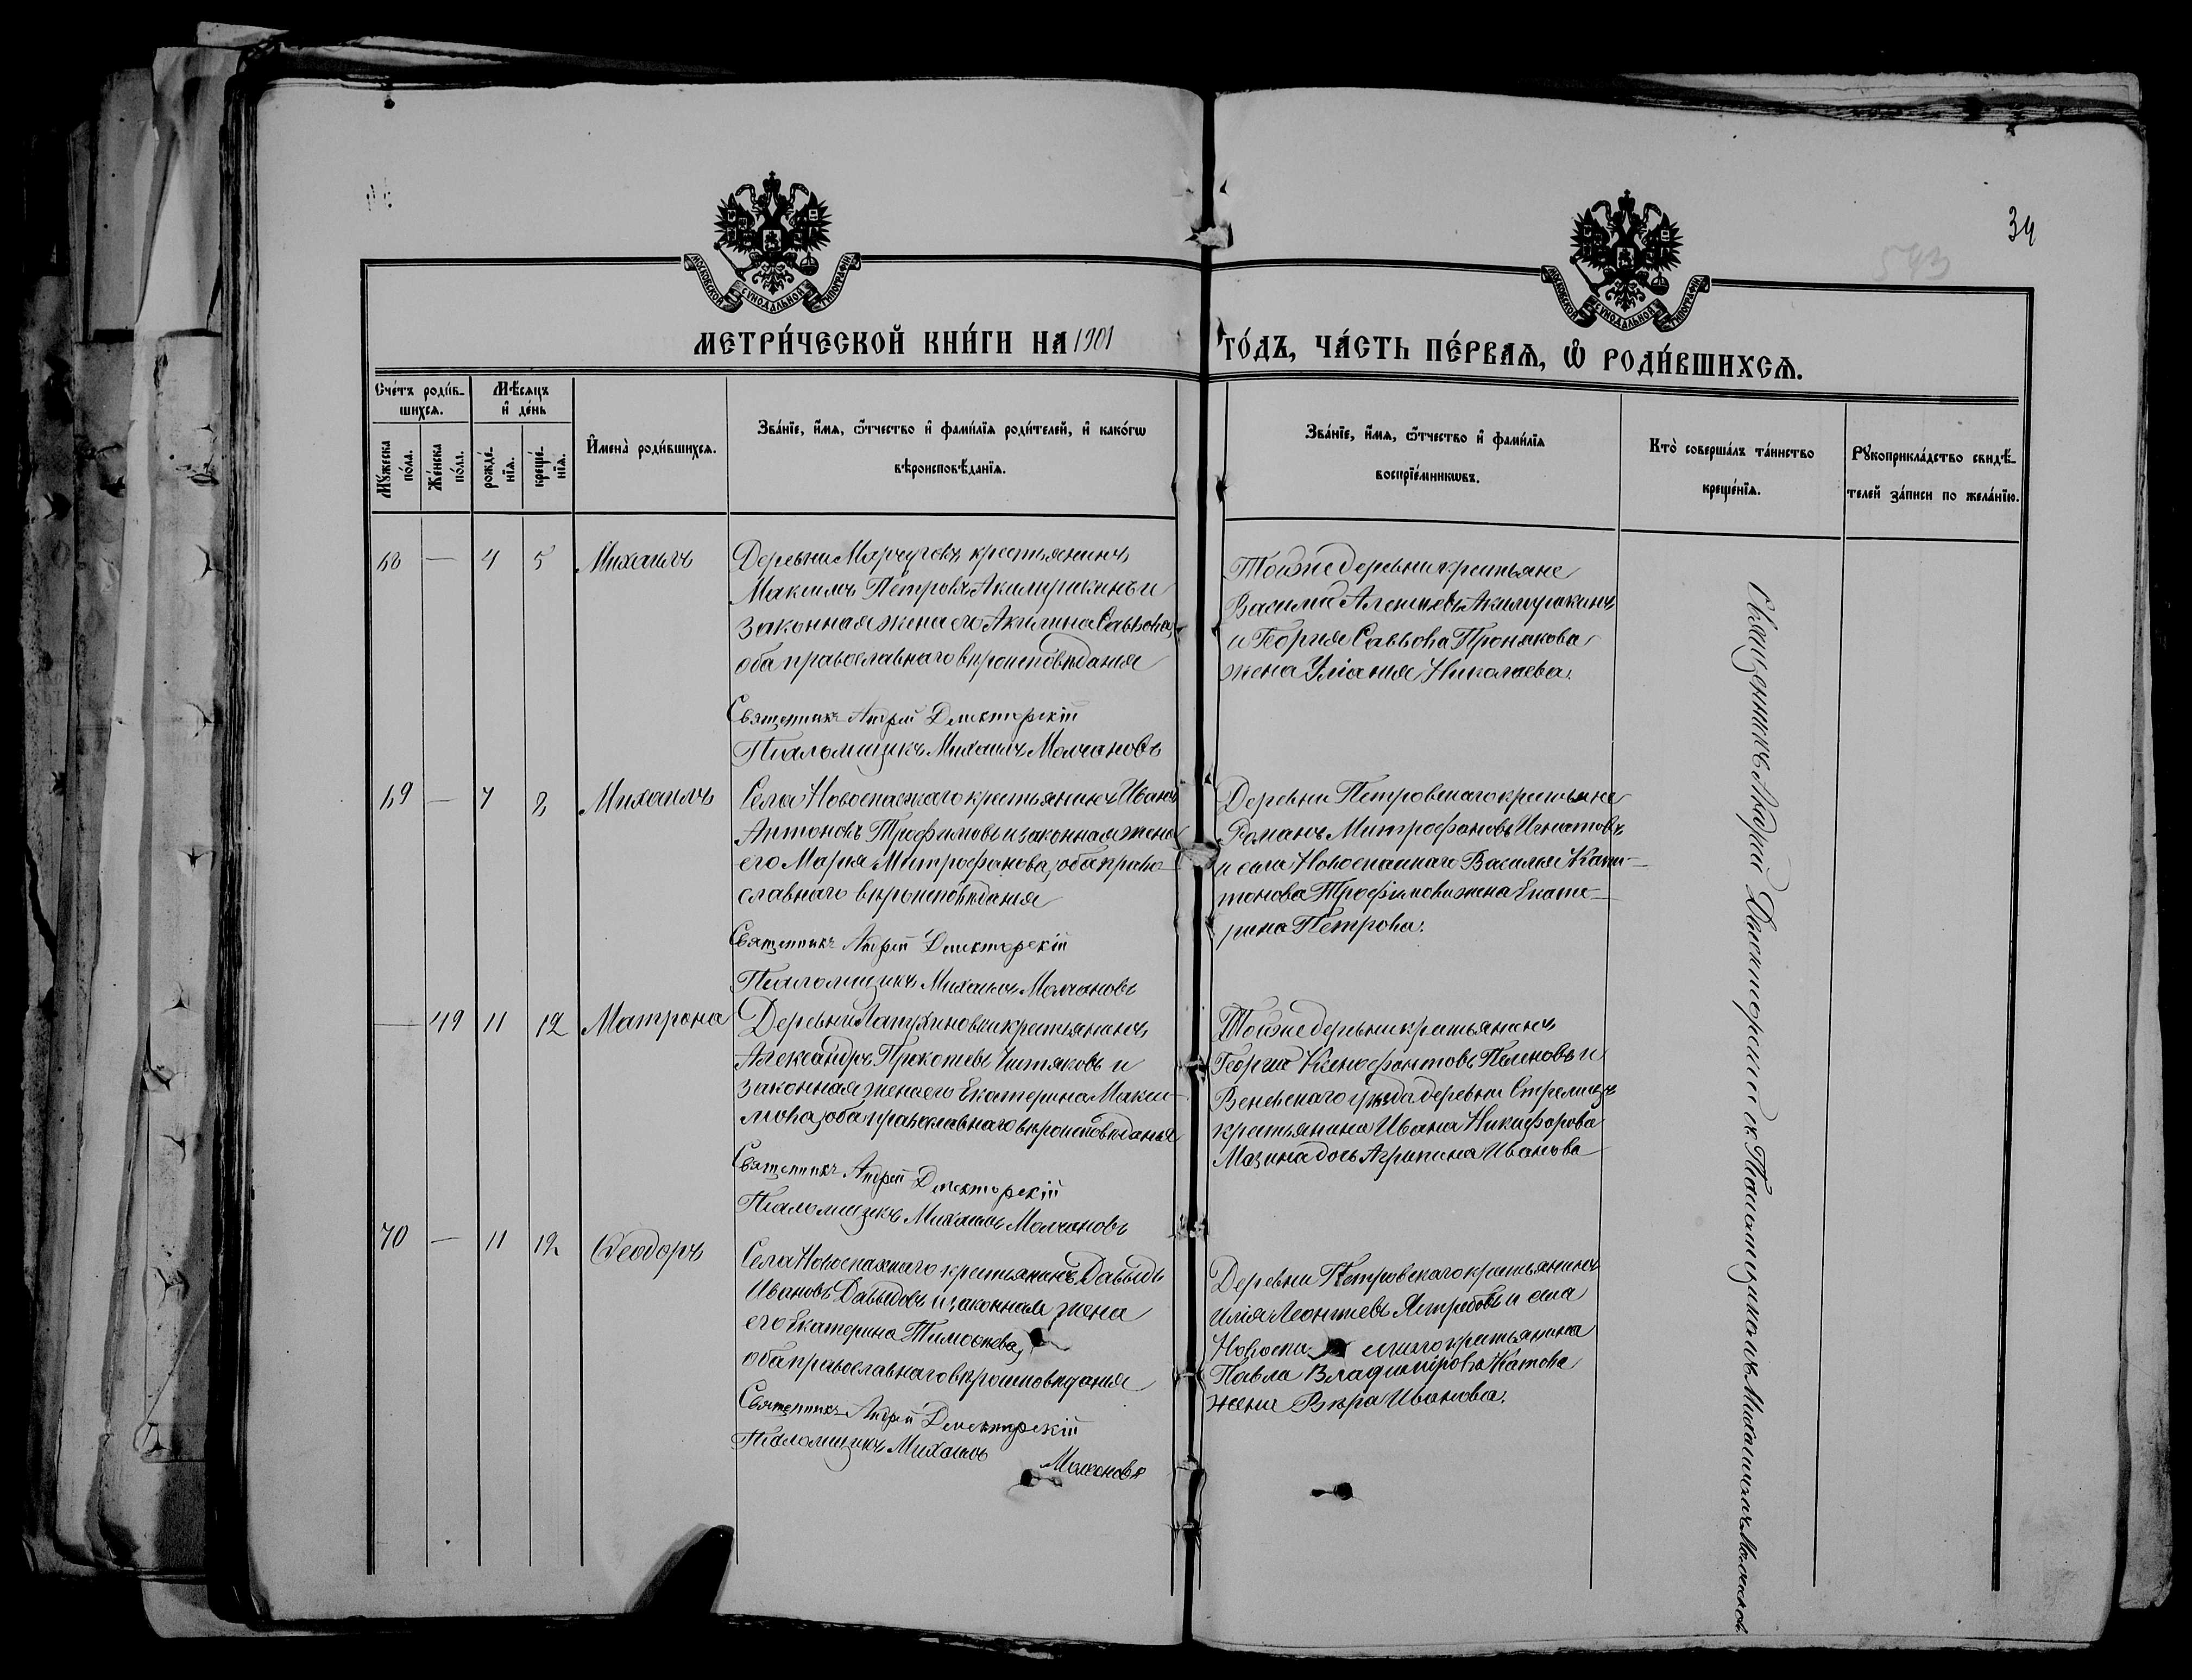 34
543
МОСКОВСКОЙ СѴНОДАЛЬНОЙ ТИПОГРАФІИ
МОСКОВСКОЙ СѴНОДАЛЬНОЙ ТИПОГРАФІИ
МЕТРИ́ЧЕСКОЙ КНИ́ГИ НА 1901 ГО́ДЪ, ЧА́СТЬ ПЕ́РВАѦ, Ѽ РОДИ́ВШИХСѦ.
Сче́тъ роди́в-
шихсѧ.
Мꙋжеска по́ла.
Же́нска по́ла.
Мѣ́сѧцъ
и҆ де́нь
рожде́-
нїѧ.
креще́-
нїѧ.
И҆мена̀ роди́вшихсѧ.
Зва́нїе, и҆́мѧ, ѻ҆́тчество и҆ фами́лїѧ роди́телей, и҆ како́гѡ
вѣроисповѣ́данїѧ.
Зва́нїе, и҆́мѧ, ѻ҆́тчество и҆ фами́лїѧ
воспрїе́мникѡвъ.
Кто̀ соверша́лъ та́инство
креще́нїѧ.
Рꙋкоприкла́дство свидѣ́-
телей за́писи по жела́нїю.
68 — 4 5 Михаилъ
Деревни Марчуговъ крестьянинъ
Максимъ Петровъ Акимушкинъ и
законная жена его Акилина Саввова,
оба православнаго вѣроисповѣданія
Священникъ Андрей
Псаломщикъ Михаилъ Молчановъ
Тойже деревни крестьяне
Василій Алексѣевъ Акимушкинъ
и Георгія Саввова Пронякова
жена Уліанія Николаева.
69 — 7 8 Михаилъ
Села Новоспасскаго крестьянинъ Иванъ
Антоновъ Трофимовъ и законная жена
его Марія Митрофанова, оба право-
славнаго вѣроисповѣданія
Священникъ Андрей
Псаломщикъ Михаилъ Молчановъ
Деревни Петровскаго крестьяне
Романъ Митрофановъ Игнатовъ
и села Новоспасскаго Василія Капи-
тонова Трофимова жена Екате-
рина Петрова.
— 49 11 12 Матрона
Деревни Латухиновки крестьянинъ
Александръ Прокопіевъ и
законная жена его Екатерина Макси-
мова, оба православнаго вѣроисповѣданія
Священникъ Андрей
Псаломщикъ Михаилъ Молчановъ
Тойже деревни крестьянинъ
Георгій Ксенофонтовъ и
Веневскаго уѣзда деревни
крестьянина Ивана Никифорова
Мазина дочь Агрипина Иванова
70 — 11 12 Ѳеодоръ
Села Новоспасскаго крестьянинъ Давыдъ
Ивановъ Давыдовъ и законная жена
его Екатерина Тимоѳеева,
оба православнаго вѣроисповѣданія
Священникъ Андрей
Псаломщикъ Михаилъ
Молчановъ
Деревни Петровскаго крестьянинъ
Илія Леонтіевъ Ястребовъ и села
Новоспасскаго крестьянина
Павла Владимірова Катова
жена Вѣра Иванова.
Священникъ Андрей съ Псаломщикомъ Михаиломъ Молчановымъ